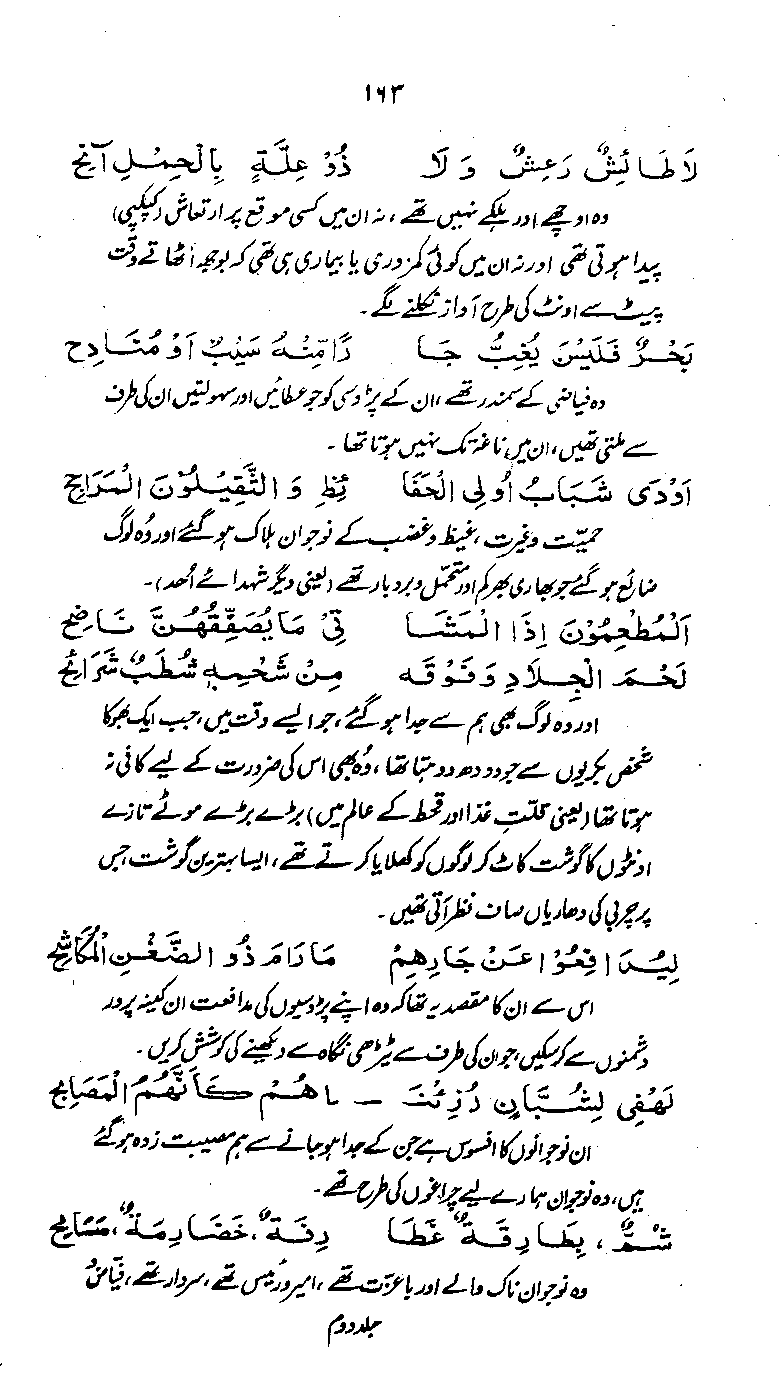 ۱۶۳
لَا طَائِشٌ رَعِشٌ وَلَا ذُوْ عِلَّةٍ بِالْحِمْلِ آنِحْ
وہ اوچھے اور ہلکے نہیں تھے، نہ ان میں کسی موقع پر ارتعاش (کپکپی)
پیدا ہوتی تھی اور نہ ان میں کوئی کمزوری یا بیماری ہی تھی کہ بوجھ اُٹھاتے وقت
پیٹ سے اونٹ کی طرح آواز نکلنے لگے۔
بَحْرٌ فَلَيْسَ يُغِبُّ جَا رًا مِنْهُ سَيْبٌ اَوْ مُنَادِحْ
وہ فیاضی کے سمندر تھے، ان کے پڑوسی کو جو عطائیں اور سہولتیں ان کی طرف
سے ملتی تھیں، ان میں ناغہ تک نہیں ہوتا تھا۔
اَوْدَى شَبَابُ اُولِى الْحَفَا ئِظِ وَالثَّقِيْلُوْنَ الْمَرَاجِحْ
حمیّت و غیرت، غیظ و غضب کے نوجوان ہلاک ہو گئے اور وُہ لوگ
ضائع ہو گئے جو بھاری بھرکم اور متحمل و بردبار تھے (یعنی دیگر شہدائے اُحد)۔
اَلْمُطْعِمُوْنَ اِذَا الْمَشَا تِىْ مَا يُصَفِّقُهُنَّ نَاضِحْ
لَحْمَ الْجِلَادِ وَفَوْقَهٗ مِنْ شَحْمِهٖ شُطَبٌ شَرَائِحْ
اور وہ لوگ بھی ہم سے جدا ہو گئے، جو ایسے وقت میں، جب ایک بھوکا
شخص بکریوں سے جو دودھ دوہتا تھا، وُہ بھی اس کی ضرورت کے لیے کافی نہ
ہوتا تھا (یعنی قلتِ غذا اور قحط کے عالم میں) بڑے بڑے موٹے تازے
اونٹوں کا گوشت کاٹ کر لوگوں کو کھلایا کرتے تھے، ایسا بہترین گوشت، جس
پر چربی کی دھاریاں صاف نظر آتی تھیں۔
لِيُدَافِعُوْا عَنْ جَارِهِمْ مَا رَامَ ذُو الضَّغْنِ الْمُكَاشِحْ
اس سے ان کا مقصد یہ تھا کہ وہ اپنے پڑوسیوں کی مدافعت ان کینہ پرور
دشمنوں سے کر سکیں، جو ان کی طرف سے ٹیڑھی نگاہ سے دیکھنے کی کوشش کریں۔
لَهْفِى لِشُبَّانٍ رُزِئْنَ - اهُمْ كَاَنَّهُمُ الْمَصَابِحْ
ان نوجوانوں کا افسوس ہے جن کے جدا ہو جانے سے ہم مصیبت زدہ ہو گئے
ہیں، وہ نوجوان ہمارے لیے چراغوں کی طرح تھے۔
شُمٌّ، بَطَارِقَةٌ غَطَا رِفَةٌ، خَضَارِمَةٌ، مَسَامِحْ
وہ نوجوان ناک والے اور باعزت تھے، امیر و رئیس تھے، سردار تھے، فیاض
جلد دوم